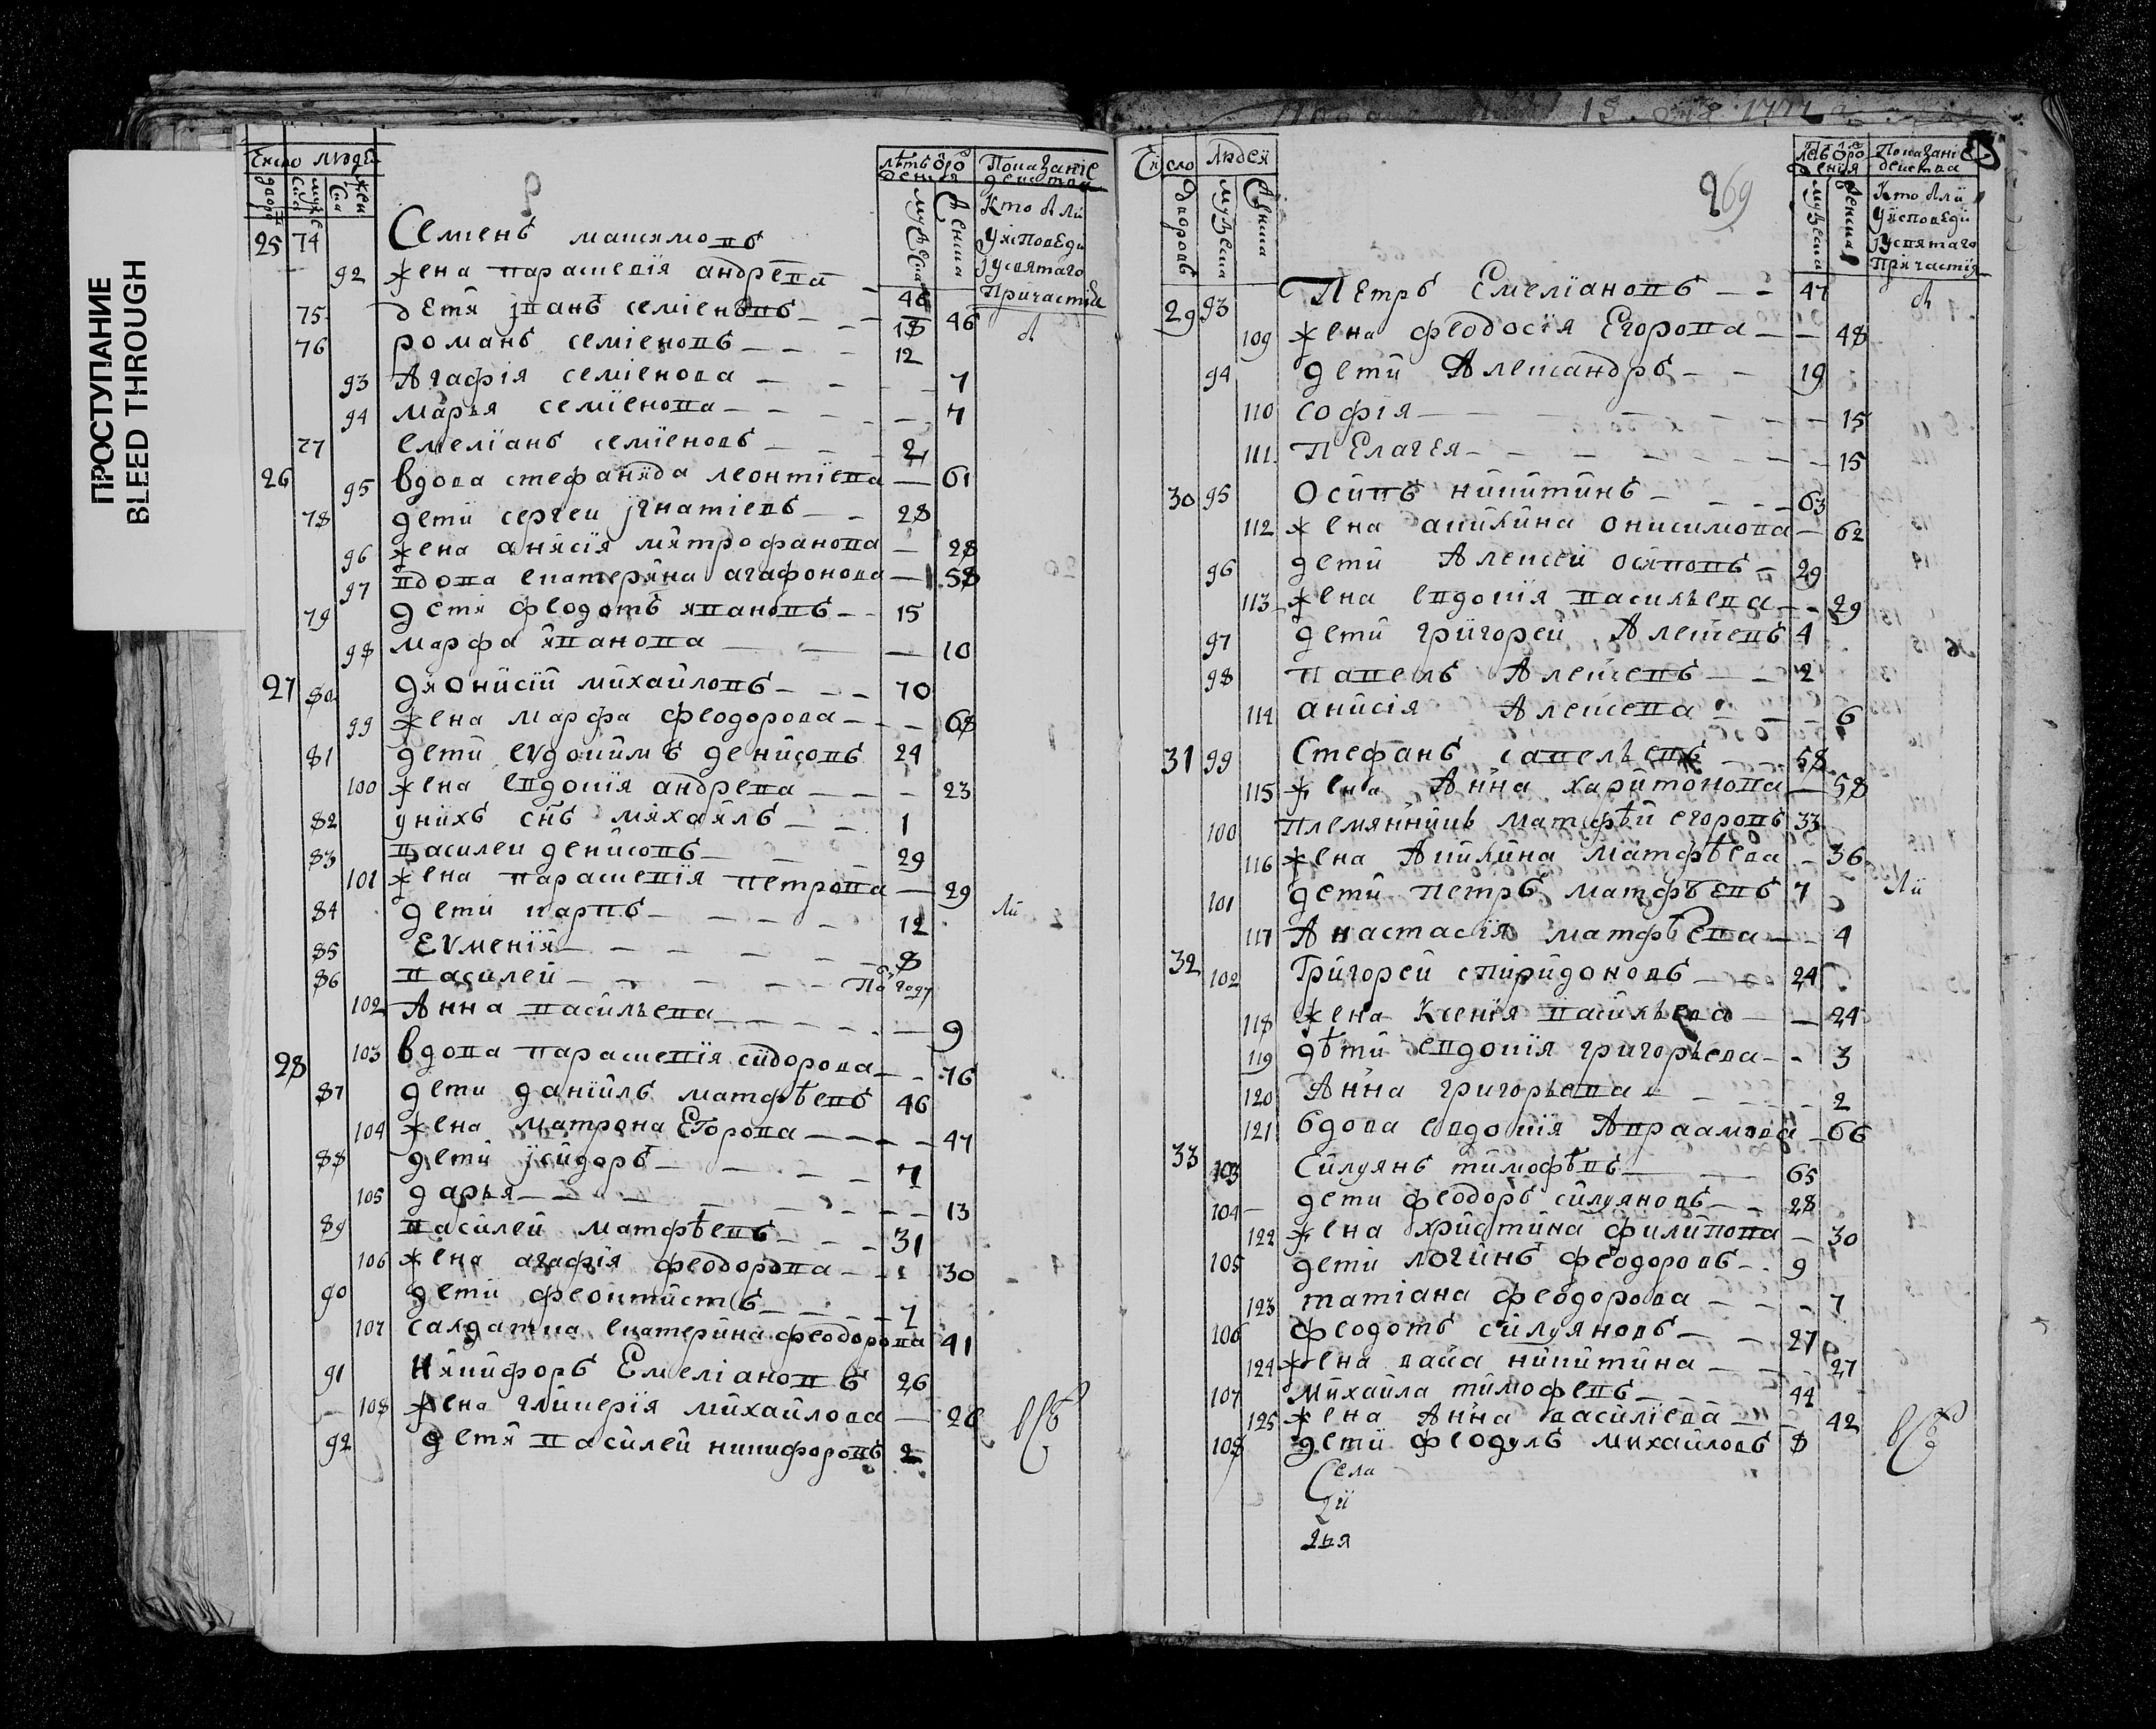 ПРОСТУПАНИЕ
BLEED THROUGH
Число людеи
дворо
мужеска
женска
лѣтъ ѿ рождения
мужеска
женска
Показанiе действа
Кто былъ
у исповеди
i у святаго
Причастия
25 74 Семенъ
92 жена парасковiя андрева 46
75 дети iванъ семiеновъ 18 46
76 романъ семiеновъ 12
93 Агафiя семiенова 7
94 марья семiенова 7
77 емелiанъ семiеновъ 2
26 95 вдова стефанида леонтiева 61
78 дети сергеи iгнатiевъ 28
96 жена анисiя митрофанова 28
97 вдова екатерина агафонова 58
79 дети феодотъ ивановъ 15
98 марфа иванова 10
27 80 диониciй михайловъ 70
99 жена марфа феодорова 68
81 дети евдокимъ денисовъ 24
100 жена евдокiя андрева 23
82 у нихъ снъ михаилъ 1
83 василеи денисовъ 29
101 жена парасковiя петрова 29
84 дети карпъ 12
85 Евменiй 8
86 василей по году
102 Анна васильева 9
28 103 вдова парасковiя сидорова 76
87 дети данiилъ матфѣевъ 46
104 жена матрона Егорова 47
88 дети iсидоръ 7
105 дарья 13
89 василей матфѣевъ 31
106 жена агафiя феодорова 30
90 дети феоктистъ 1
107 салдатка екатерина феодорова 41
91 Никифоръ Емелiановъ 26
108 жена гликерiя михайлова 26
92 дети василей никифоровъ 2
269
Число людеи
дворовъ
мужеска
женска
Показанiе
действа
Кто были
у исповеди
i у святаго
Причастия
29 93 Петръ Емелiановъ 47
109 жена феодосiя Егорова 48
94 дети Александръ 19
110 софiя 15
111 Пелагея 15
30 95 Осипъ никитинъ 63
112 жена акилина онисимова 62
96 дети Алексей осиповъ 29
113 жена евдокiя васильева 29
97 дети григорей Алексевъ 4
98 павелъ Алексевъ 2
114 анисiя Алексева 6
31 99 Стефанъ савельевъ 58
115 жена Анна харитонова 58
100 племянникъ матфѣй егоровъ 33
116 жена Акилина матфѣева 36
101 дети петръ матфѣевъ 7
117 Анастасiя матфѣева 4
32 102 Григорей спиридоновъ 24
118 жена Ксенiя васильева 24
119 дѣти евдокiя григорьева 3
120 Анна григорьева 2
121 вдова евдокiя Авраамова 66
33 103 Силуянъ тимофѣвъ 65
104 дети феодоръ силуяновъ 28
122 жена христина филипова 30
105 дети логинъ феодоровъ 9
123 татiана феодорова 7
106 феодотъ силуяновъ 27
124 жена васа никитина 27
107 михаила тимофевъ 44
125 жена Анна василiева 42
108 дети феодулъ михайловъ 8
Села